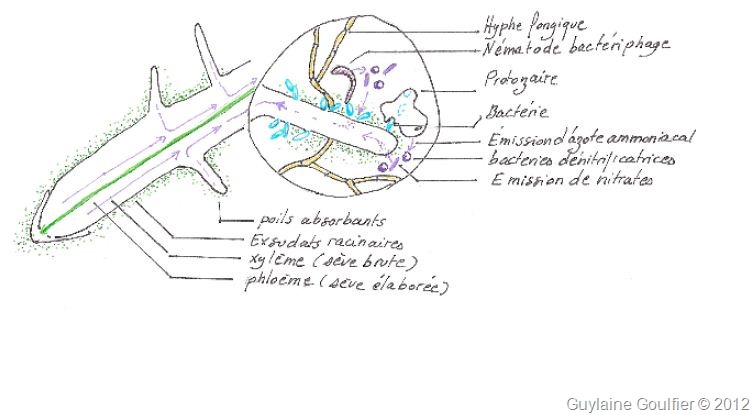 Hyphe fongique
Nématode bactériphage
Protozaire
Bactérie
Emission d'azote ammoniacal
bacteries dénitrificatrices
Emission de nitrates
poils absorbants
Exsudats racinaires
xylème (sève brute)
phloème (sève élaborée)
Guylaine Goulfier © 2012